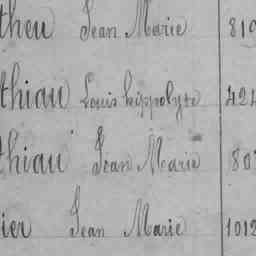 theu Jean Marie 819
thiau Louis hippolyte 421
thiau Jean Marie 807
ier Jean Marie 1012